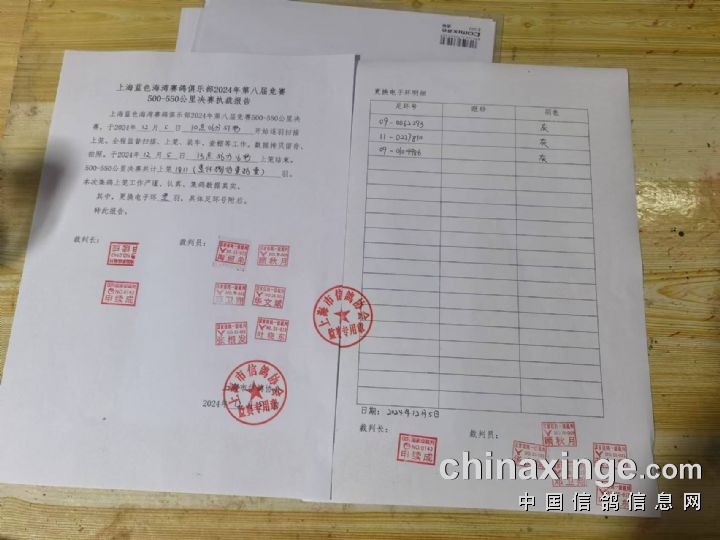 上海蓝色海湾赛鸽俱乐部2024年第八届竞赛
500-550公里决赛执裁报告
上海蓝色海湾赛鸽俱乐部2024年第八届竞赛500-550公里决
赛，于2024年12月5日 开始逐羽扫描
上笼。全程监督扫描、上笼、装车、金棚等工作。数据拷贝留存、
拍照。于2024年12月5日 上笼结束。
500-550公里决赛共计上笼1811 羽。
本次集鸽上笼工作严谨、认真、集鸽数据真实。
其中，更换电子环 羽，具体足环号附后。
特此报告。
裁判长：
裁判员：
NO.0143
申续成
顾秋月
华文斌
张根发
叶晓东
上海市信鸽协会
监赛专用章
2024年
更换电子环明细
足环号
羽色
09-0062293
灰
11-0227810
灰
灰
日期：2024年12月5日
裁判长：
裁判员：
NO.0143
申续成
顾秋月
上海市信鸽协会
监赛专用章
chinaxinge.com
中国信鸽信息网